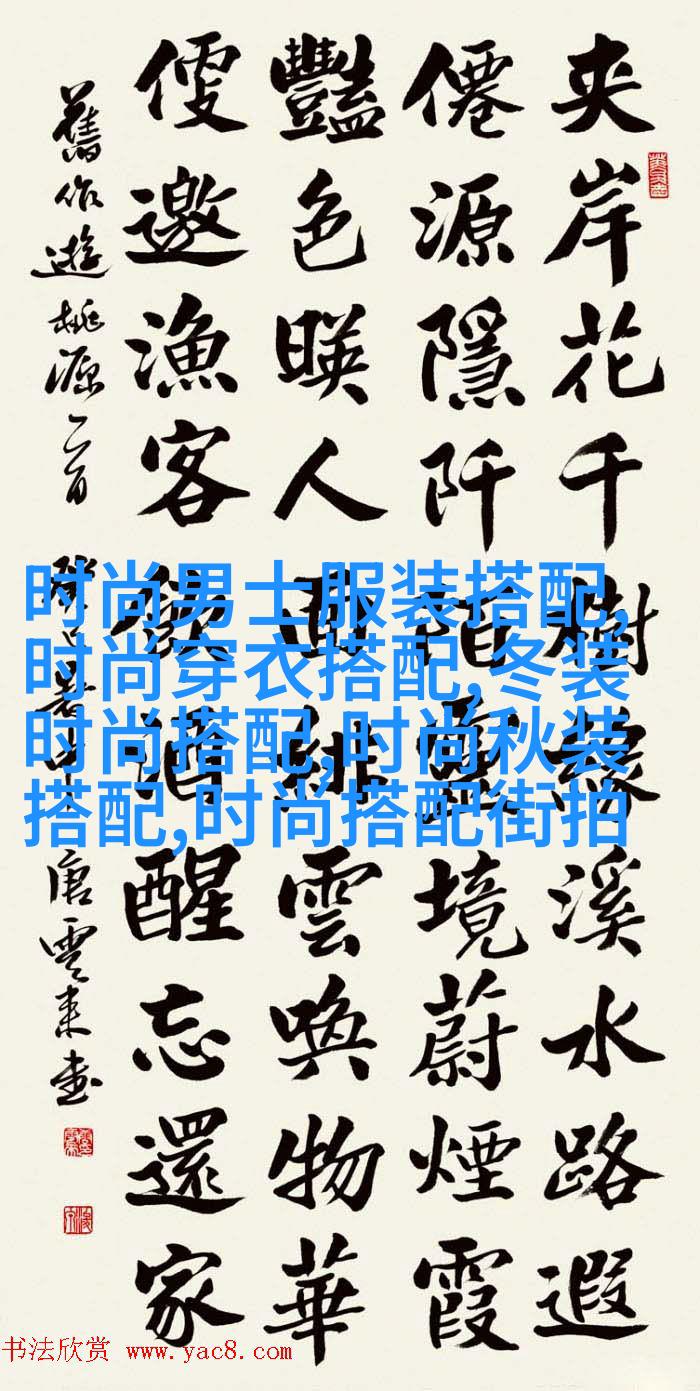 夾岸花千樹緣溪水路遐
僊源隱阡陌靈境蔚煙霞
豔色暎人面緋雲喚物華
便邀漁客飲酒醒忘還家
舊作遊桃源二首 癸巳暑中 唐雲來書
时尚男士服装搭配,
时尚穿衣搭配,冬装
时尚搭配,时尚秋装
搭配,时尚搭配街拍
书法欣赏 www.yac8.com